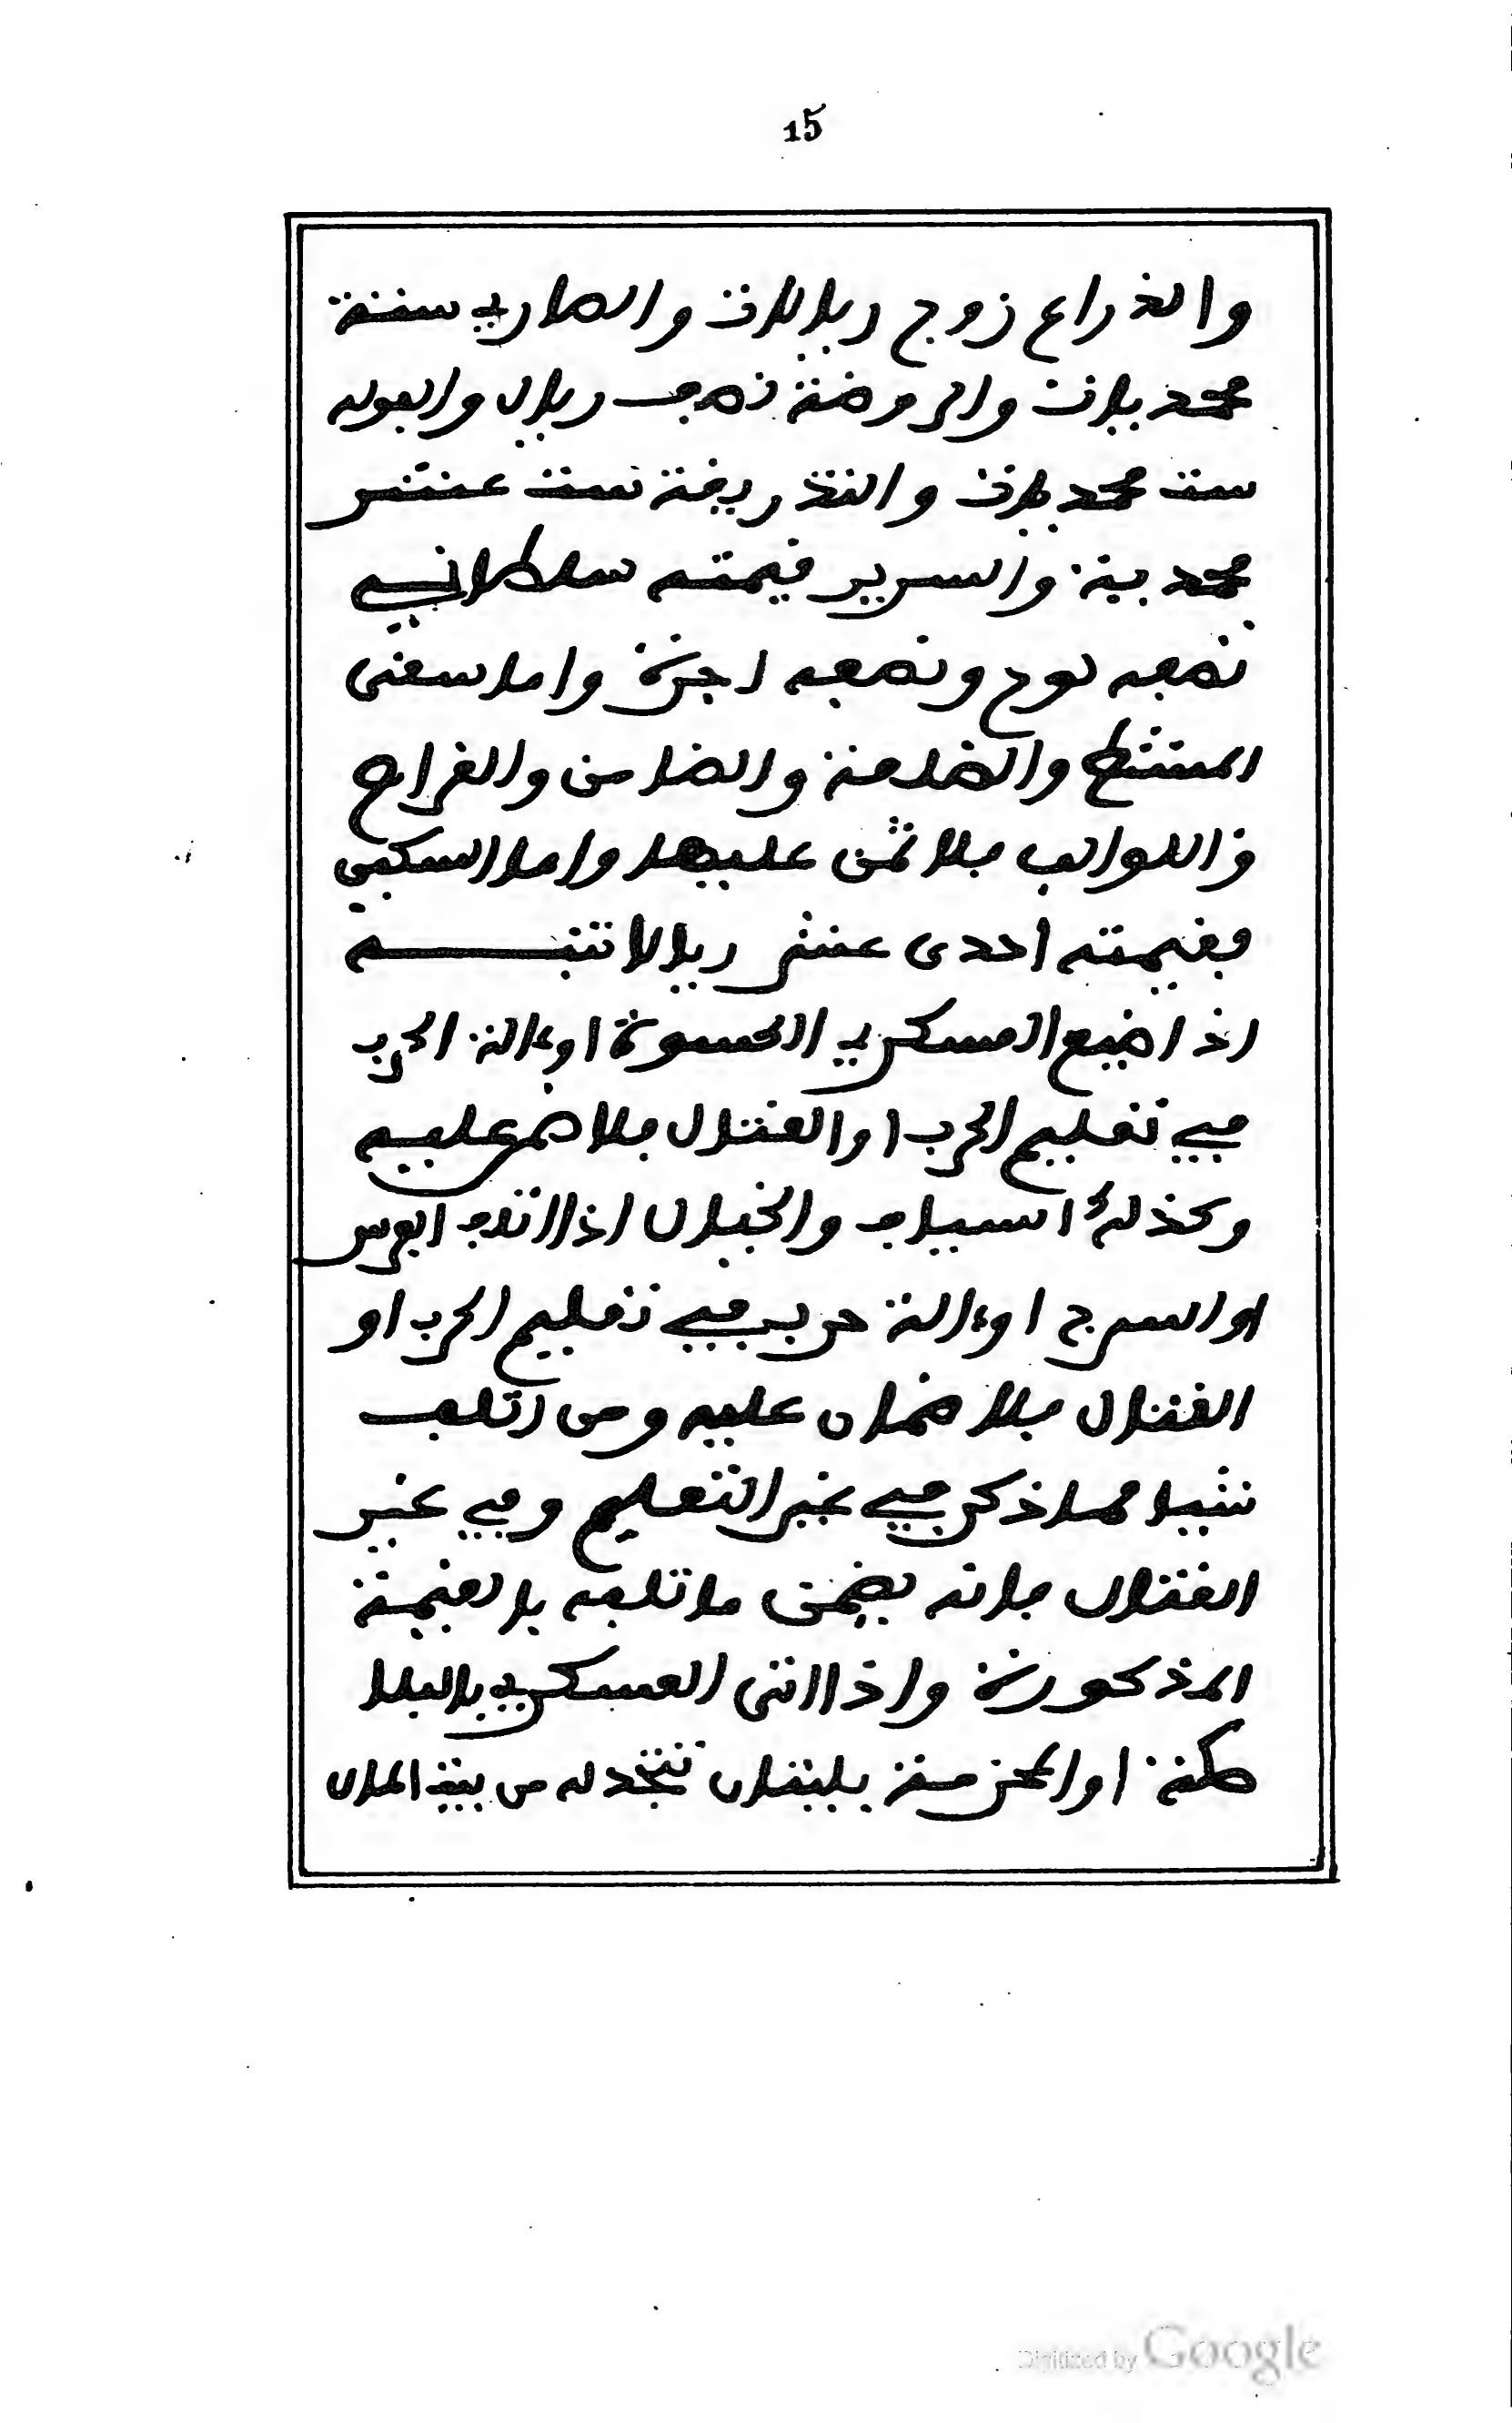 15
والذراع زوج ريالات والصاري ستة
محمديات والروضة نصف ريال والعوله
ست محمديات والتذريفة ست عشر
محمدية والسرير قيمته سلطاني
نصفه لوح ونصفه اجرة واما سقى
المشط والضامنة والضامن والفراج
واللوالب فلا ثمن عليها واما السكين
فقيمته احدى عشر ريالا تنبيه
اذا ضيع العسكري الكسوة او ءالة الحرب
في تعليم الحرب او القتال فلا ضمر عليه
وكذلك السياف والخيال اذا اتلف الفرس
او السرج او ءالة حربه في تعليم الحرب او
القتال فلا ضمان عليه ومن اتلف
شيا مما ذكر في غير التعليم وفي غير
القتال فانه يضمن ما تلفه بالقيمة
المذكورة واذا اتى العسكري بالبلا
طكة او المحزمة يليقان تتخذ له من بيت المال
Digitized by Google